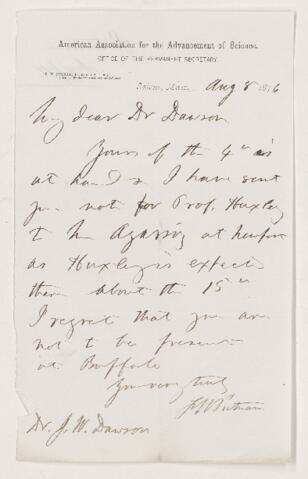 American Association for the Advancement of Science.
OFFICE OF THE PERMANENT SECRETARY.
Salem, Mass. Aug 8 1876
My dear Dr Dawson
Yours of the 4th is
at hand & I have sent
your not for Prof. Huxley
to Mr Agassiz at Newport
as Huxley is expected
there about the 15th
I regret that you are
not to be present
at Buffalo
Yours very truly
F W Putnam
Dr. J. W. Dawson